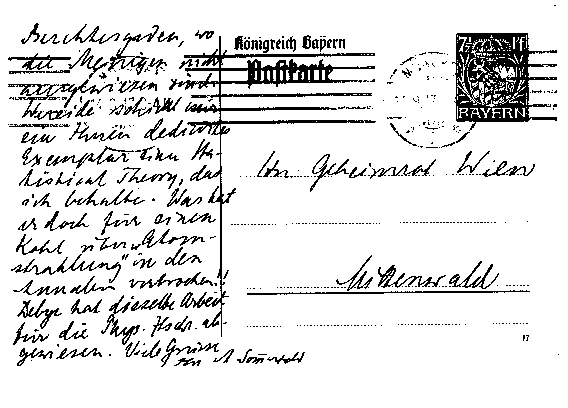 Berchtesgaden, wo
die Meinigen nicht
ausgewiesen sind.
schickt mir
ein Ihnen dediciertes
Exemplar einer Sta-
tistical Theory, das
ich behalte. Was hat
er doch für einen
Kohl über „Atom-
strahlung" in den
Annalen verbrochen!!
Debye hat dieselbe Arbeit
für die Phys. Ztschr. ab-
gewiesen. Viele Grüsse
A Sommerfeld
Königreich Bayern
Postkarte
7½
BAYERN
Geheimrat Wien
Mittenwald
17